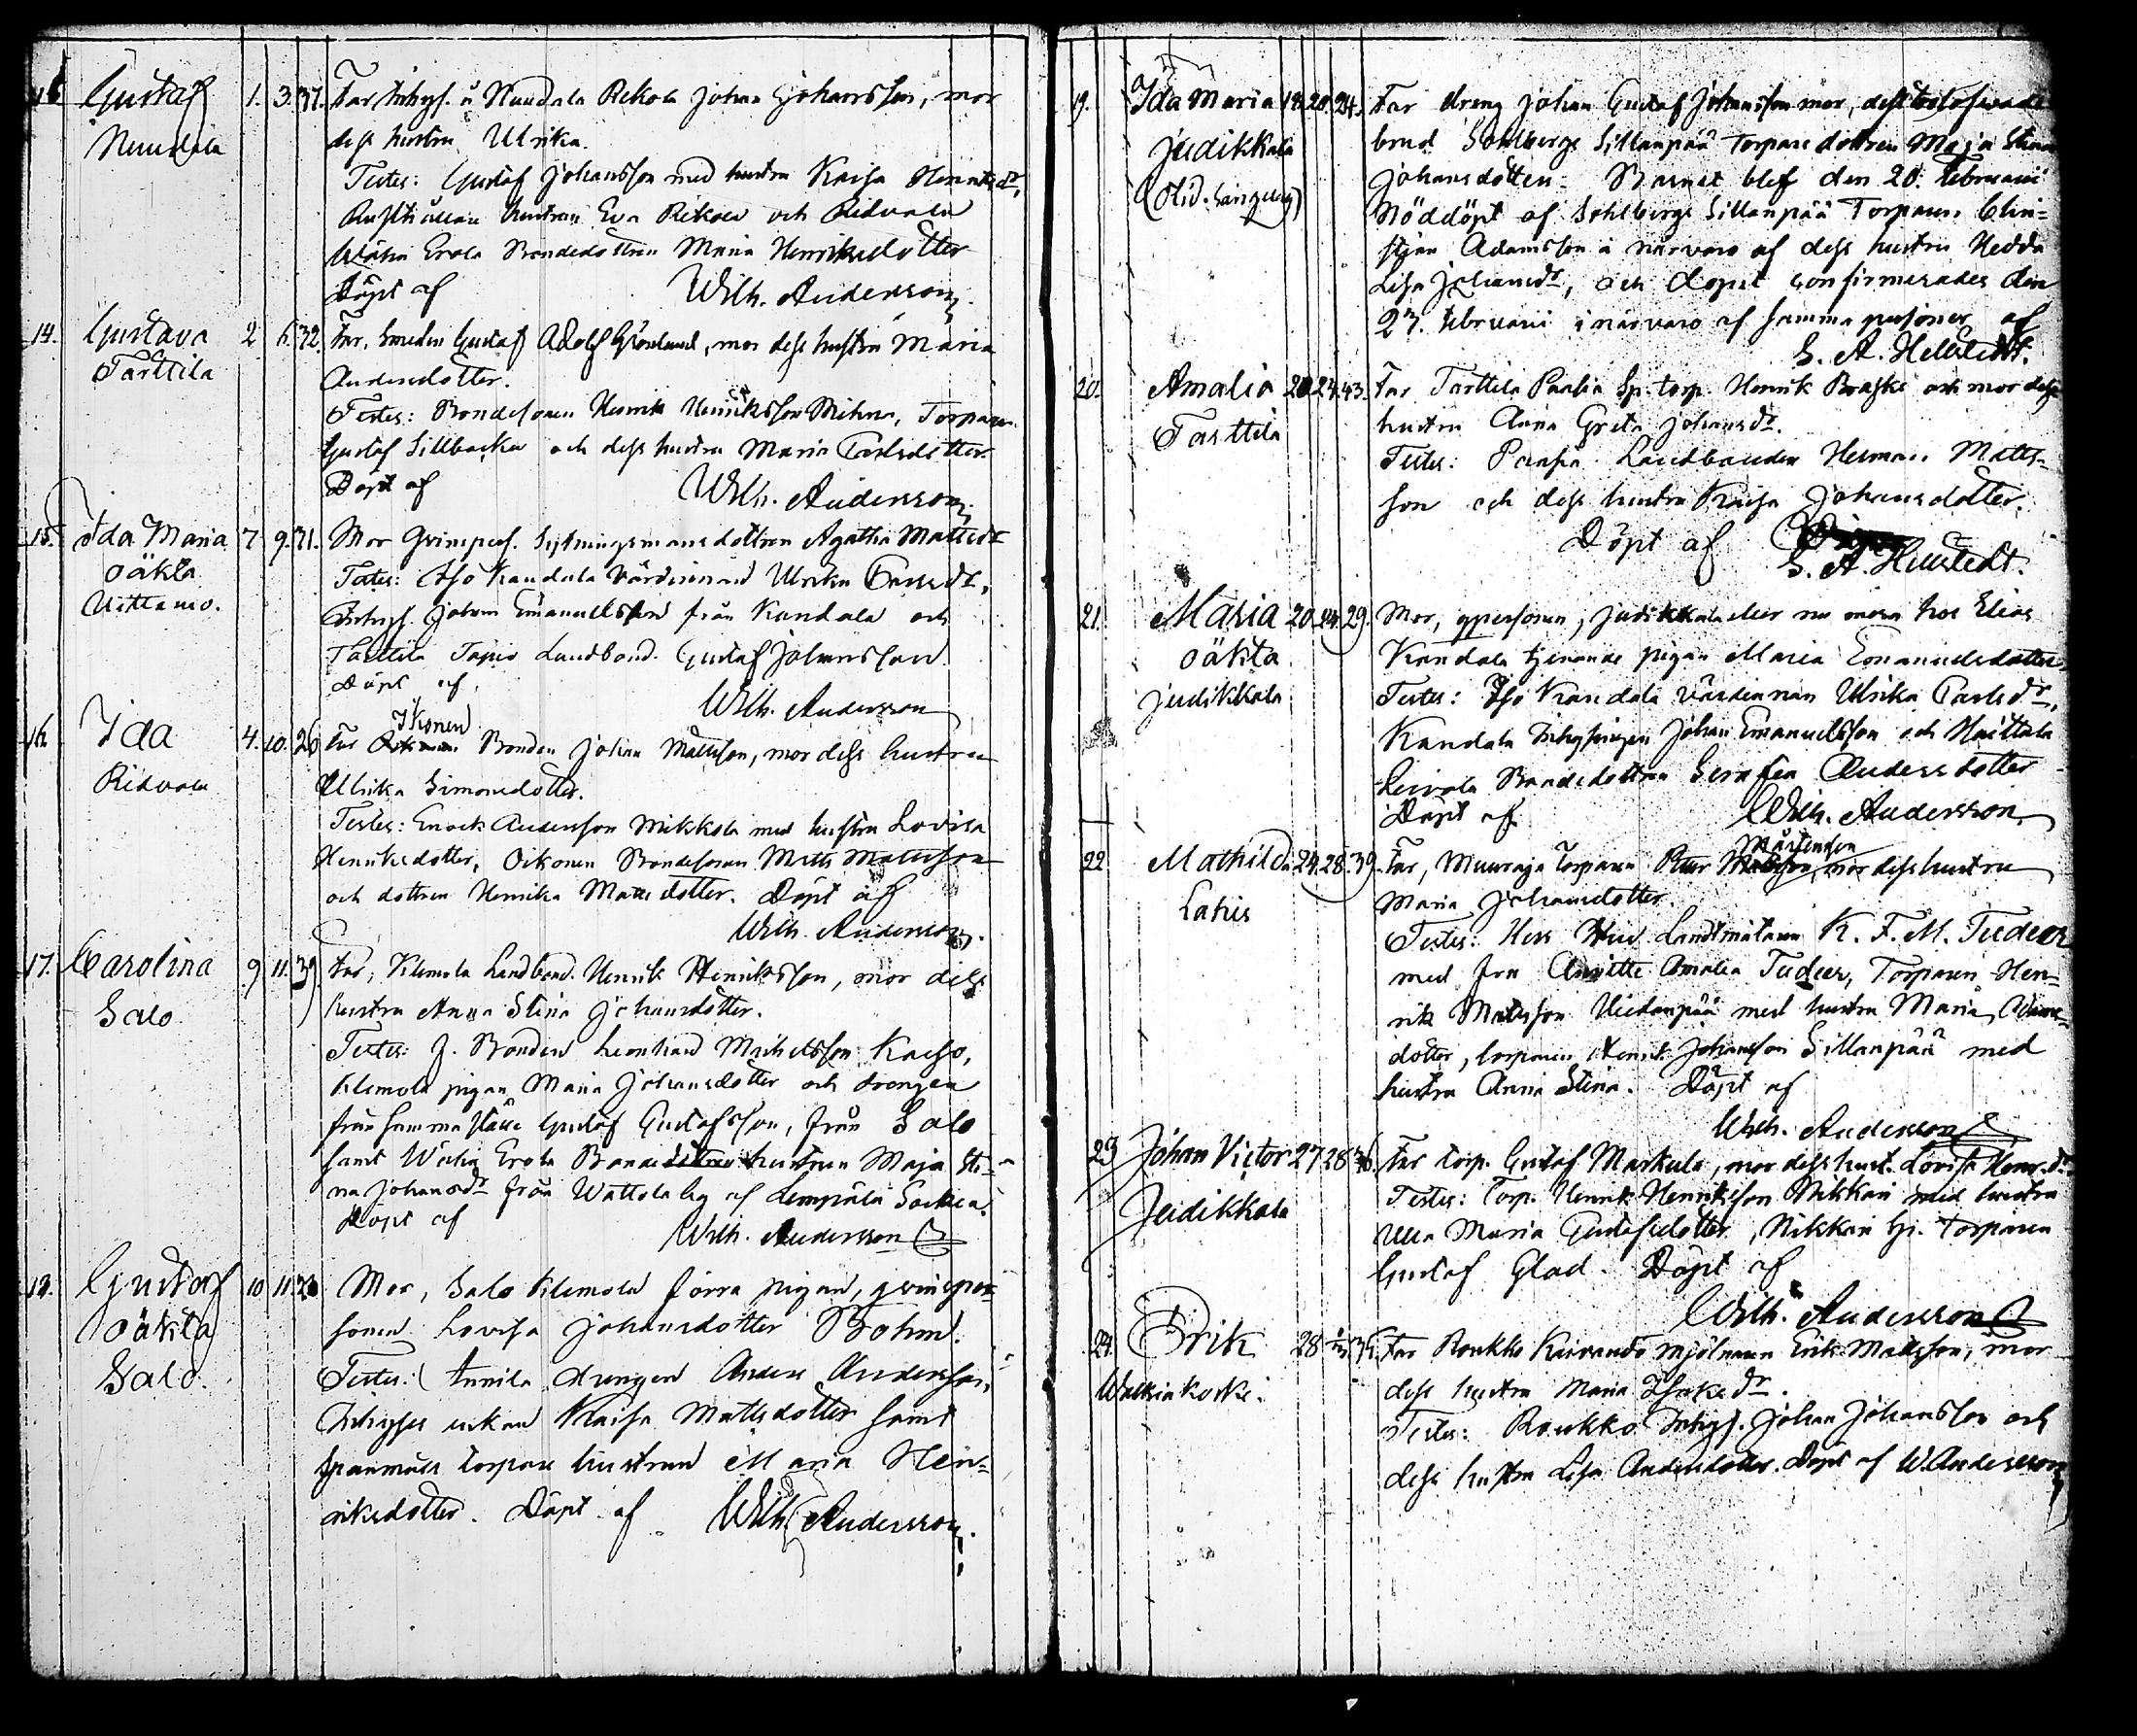 Gustaf 1. 3. 37. Far Inhys. å Nuudala Rekola Johan Johansson, mor
Nuudala dess hustru Ulrika.
Testes: Gustaf Johansson med hustru Kaisa Henriksdr,
hustrun Eva Rekola och Ridvala
Erola Bondedottren Maria Henriksdotter
Döpt af Wilh. Andersson
14. Gustava 2 6. 32. Far, Smeden Gustaf Adolf Grönlund, mor dess hustru Maria
Tarttila Andersdotter.
Testes: Bondesonen Henrik Henriksson, Torparen
Gustaf Sillbacka och dess hustru Maria Carlsdotter.
Döpt af Wilh. Andersson
15. Ida Maria 7 9. 31. Mor qvinspers. Agatha Mattsdr
oäkta Testes: Iso Kandala Värdinnan Ulrika Carlsdr,
Uittamo. Inhys. Johan Emanuelsson från Kandala och
Tarttila Landbond. Gustaf Johansson
Döpt af
Wilh. Andersson
16. Ida 4. 10. 26. Far Ikonen Bonden Johan Mattsson, mor dess hustru
Ridvala Ulrika Simonsdotter.
Testes: Enock Andersson Mikkola med hustru Lovisa
Henriksdotter, Oikonen Bondesonen Matts Mattsson
och dottren Henrika Mattsdotter. Döpt af
Wilh. Andersson
17. Carolina 9 11. 39. Far, Klemola Landbond. Henrik Henriksson, mor dess
Salo hustru Anna Stina Johansdotter.
Testes: f. Bonden Leonhard Michelsson Kaeso,
Klemola pigan Maria Johansdotter och drengen
från samma ställe Gustaf Gustafsson, från Salo
samt Erola hustrun Maja Sti-
na Johansdr från Wattola by af Lempäla Socken.
Döpt af Wilh. Andersson
18. Gustaf 10 11. Mor, Salo Klemola förra pigan, qvinsper-
oäkta sonen Lovisa Johansdotter Bohm.
Salo. Testes: Annila drengen Anders Andersson,
Inhyses enkan Kaisa Mattsdotter samt
torpare hustrun Maria Hen-
riksdotter. Döpt af Wilh. Andersson.
19. Ida Maria 19. 20. 24. Far dreng Johan Gustaf Johansson mor, dess trolofvade
Judikkala brud Sohlbergs Sillanpää Torparedottren Maja Stina
Johansdotter. Barnet blef den 20. Februarii
Nöddöpt af Sohlbergs Sillanpää Torparen Chri-
stjan Adamsson i närvaro af dess hustru Hedda
Lisa Johansdr, och dopet confirmerades den
27. februarii i närvaro af samma personer af
S. A. Hellstedt.
20. Amalia 20. 24. 43. Far Tarttila Paalia Sp. torp. Henrik Braske och mor dess
Tarttila hustru Anna Greta Johansdr.
Testes: Landbonden Herman Matts-
son och dess hustru Kaisa Johansdotter.
Döpt af
S. A. Hellstedt.
21. Maria 20. 24. 29. Mor, qpersonen, Judikkala eller nu mera hos Elias
oäkta Kandala tjenande pigan Maria Emanuelsdotter
Judikkala Testes: Iso Kandala värdinnan Ulrika Carlsdr,
Kandala Inhysingen Johan Emanuelsson och Huittula
Bondedottren Serafia Andersdotter
Döpt af Wilh. Andersson
22. Mathilda 24. 28. 39. Far, Muuraja Torparen Mårtensson mor dess hustru
Lahis Maria Johansdotter.
Testes: Herr Landtmätaren K. F. M. Tudeer
med fru Amalia Tudeer, Torparen Hen-
rik Mattsson med hustru Maria
dotter, torparen Henrik Johansson Sillanpää med
hustru Anna Stina. Döpt af
Wilh. Andersson
23. Johan Victor 27. 28. Far torp. Gustaf Markula, mor dess hust. Lovisa Henr.dr
Judikkala Testes: Torp. Henrik Henriksson Nikkari med hustru
Ulla Maria Gustafsdotter, Nikkari Torparen
Gustaf Glad. Döpt af
Wilh. Andersson
24. Erik 28 Far Roukko mjölnaren Erik Mattsson, mor
Walkiakoski. dess hustru Maria Isaksdr.
Testes: Roukko Inhys. Johan Johansson och
dess hustru Lisa Andersdotter. Döpt af W. Andersson